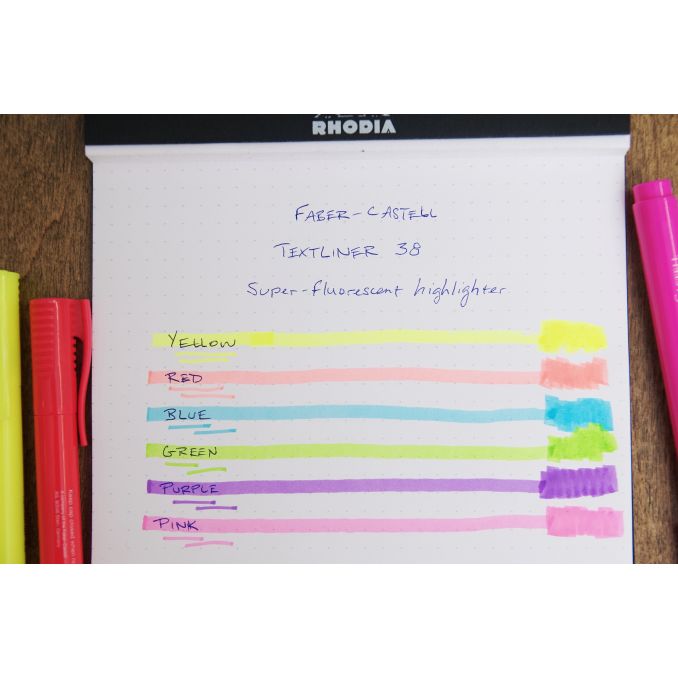 RHODIA
FABER-CASTELL
TEXTLINER 38
Super-fluorescent highlighter
YELLOW
RED
BLUE
GREEN
PURPLE
PINK
Keep cap closed when